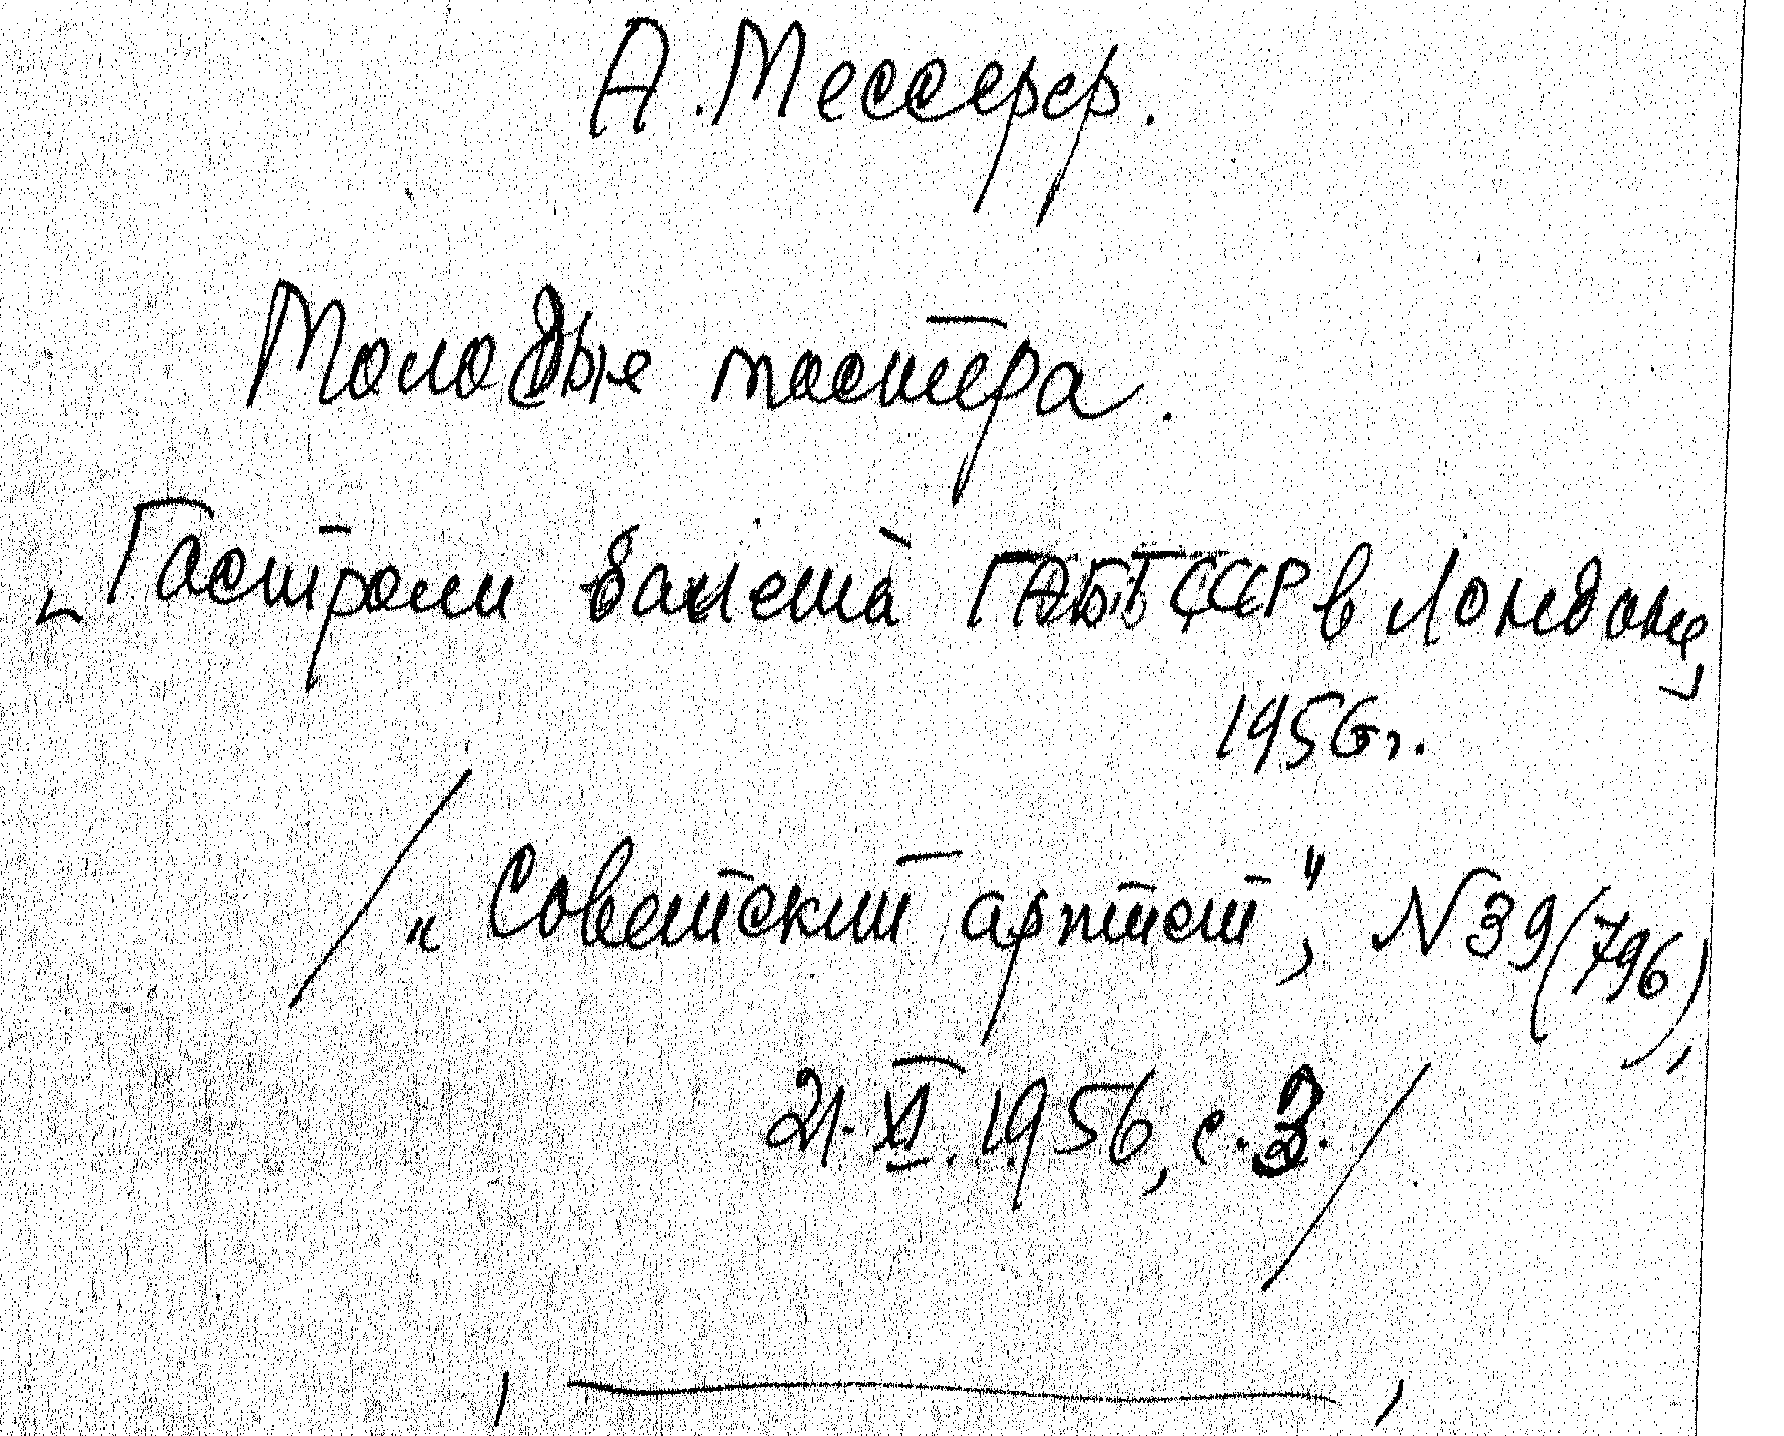 А. Мессерер.
Молодые мастера.
Гастроли балета ГАБТ СССР в Лондоне,
1956 г.
/ "Советский артист", N 39 (796),
21. XI. 1956, с. 3. /